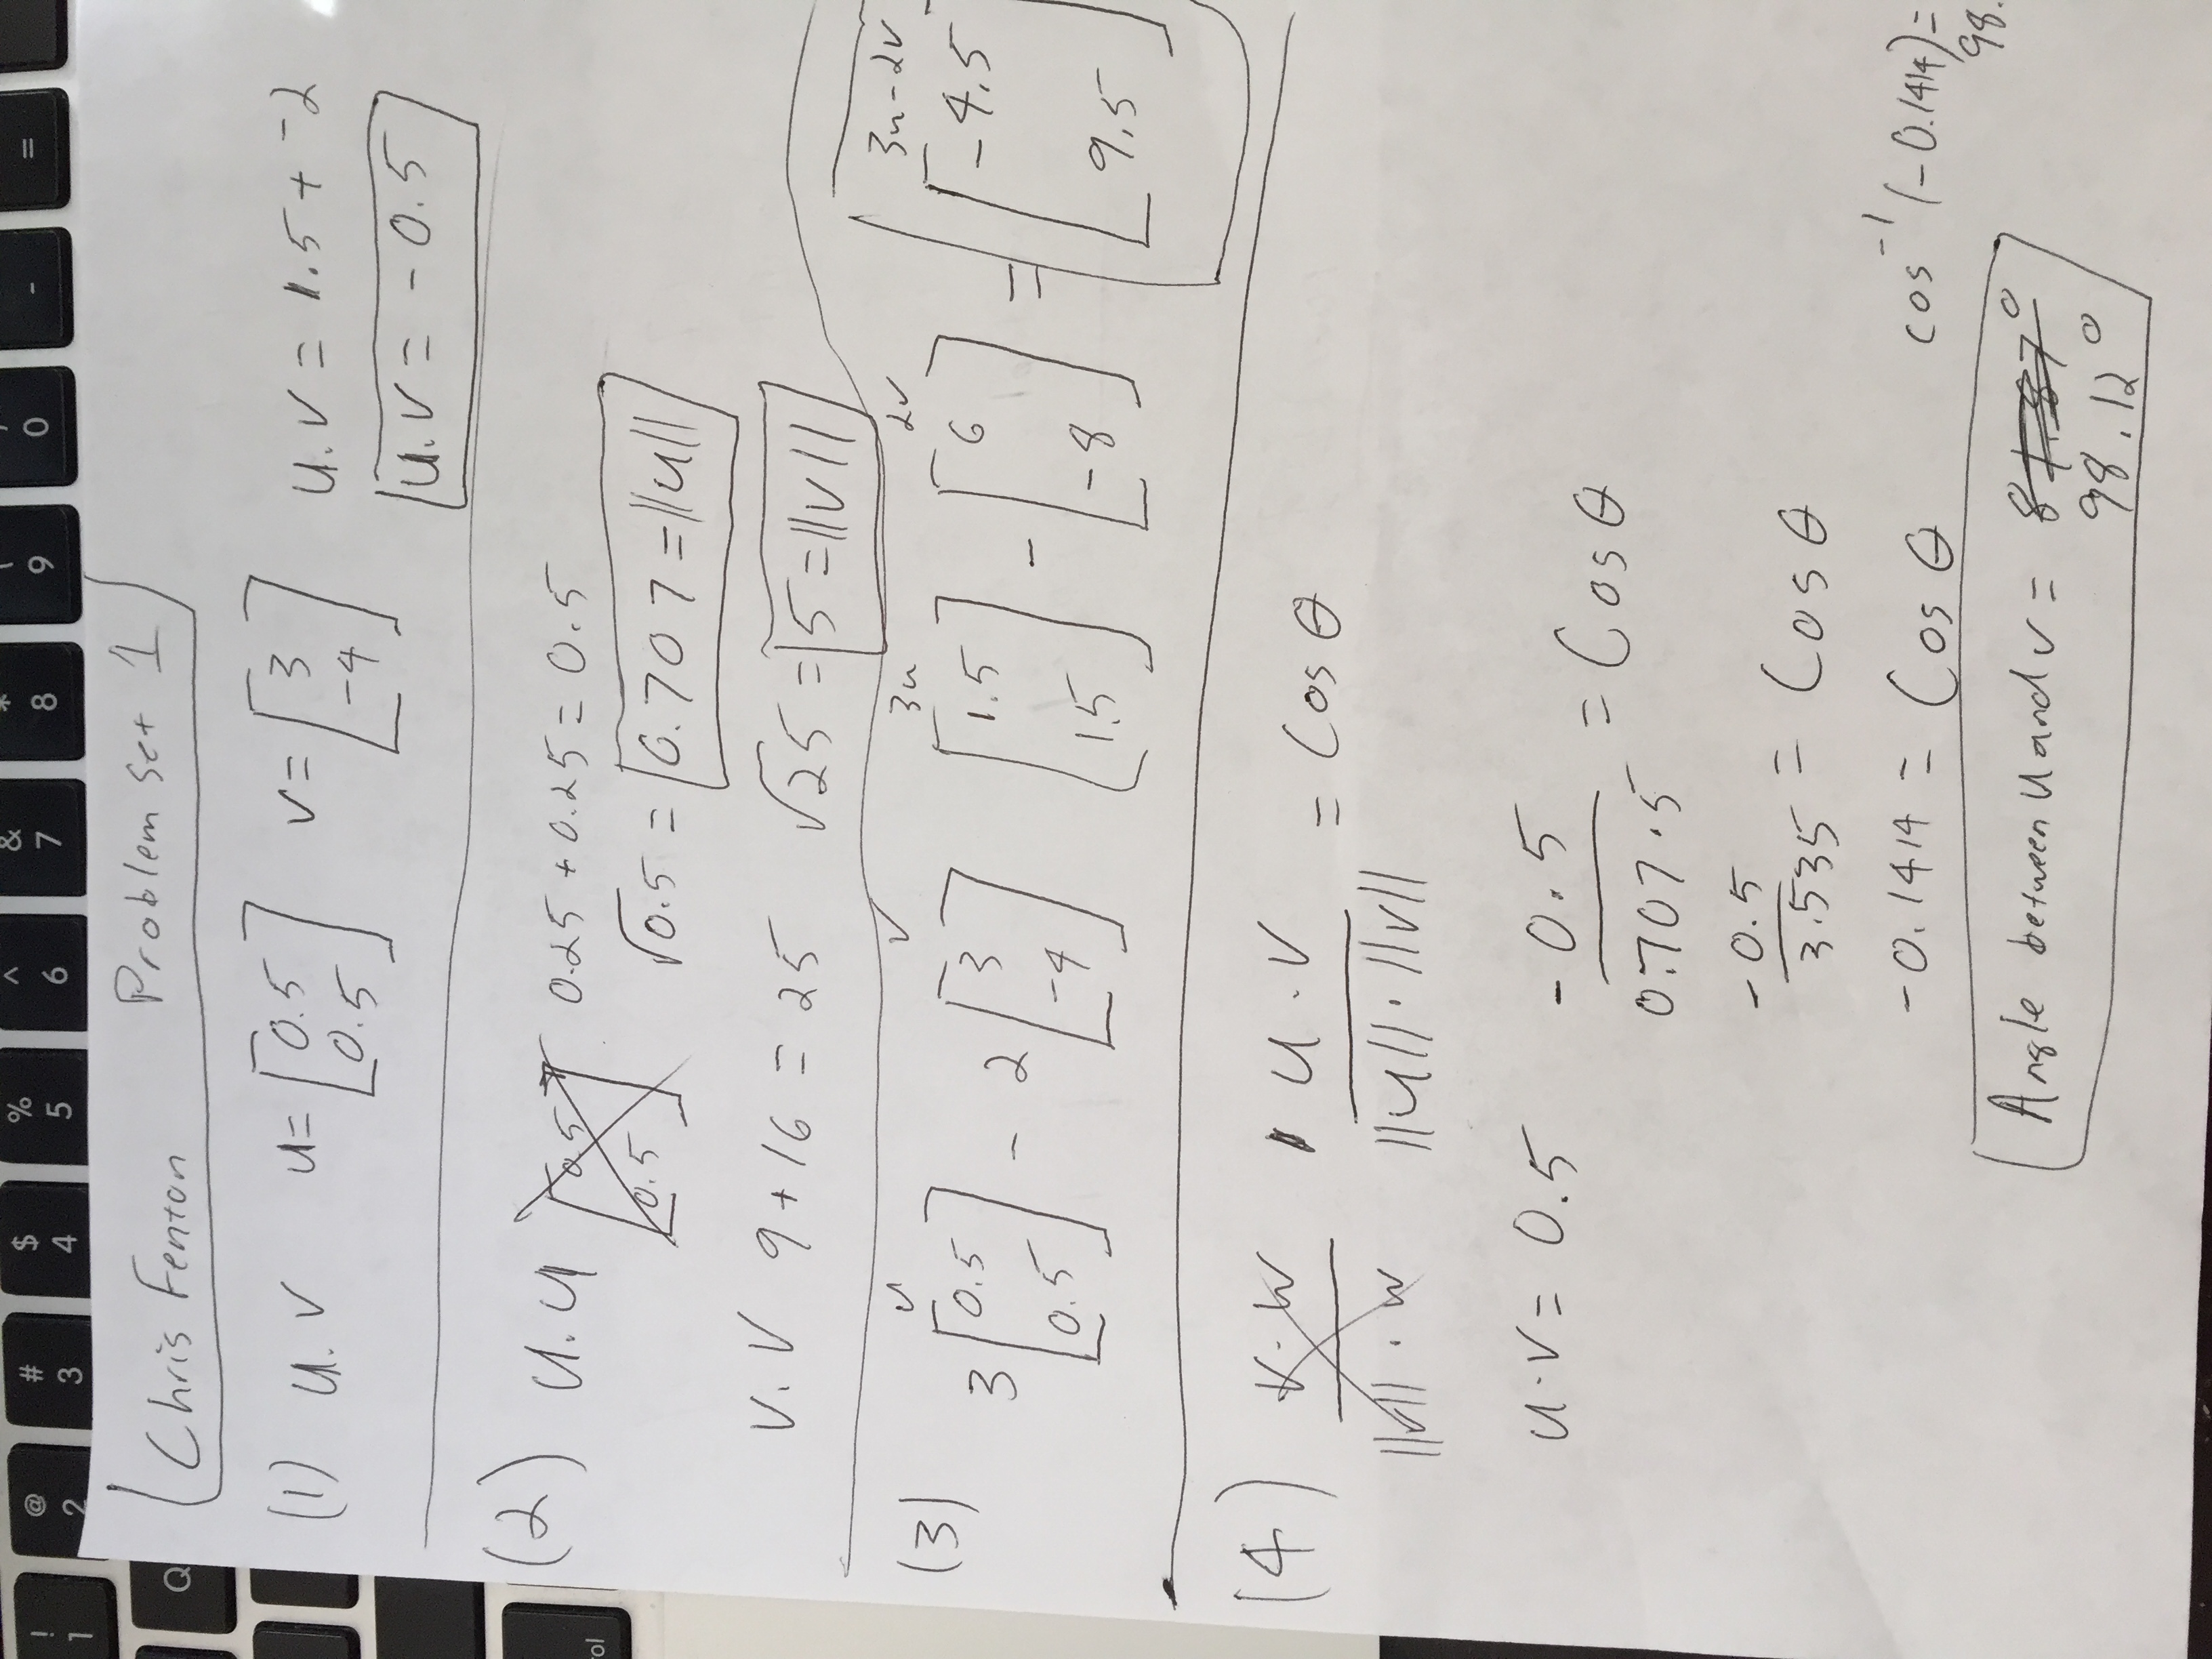 ! @ # $ % ^ & * ( ) - =
1 2 3 4 5 6 7 8 9 0
Q
ol
Chris Fenton Problem Set 1
(1) u.v u= [0.5 0.5] v= [3 -4] u.v = 1.5 + -2
u.v = -0.5
(2) u.u [0.5 0.5] 0.25 + 0.25 = 0.5
√0.5 = 0.707 = ||u||
v.v 9+16 = 25 √25 = 5 = ||v||
(3) 3 [0.5 0.5] - 2 [3 -4] 3u [1.5 1.5] - 2v [6 -8] = 3u-2v [-4.5 9.5]
(4) v.w / ||v||.w u.v / ||u||.||v|| = Cos θ
u.v = 0.5 -0.5 / 0.707.5 = Cos θ
-0.5 / 3.535 = Cos θ
-0.1414 = Cos θ cos⁻¹(-0.1414) =
98.
Angle between u and v = 81.87°
98.12°